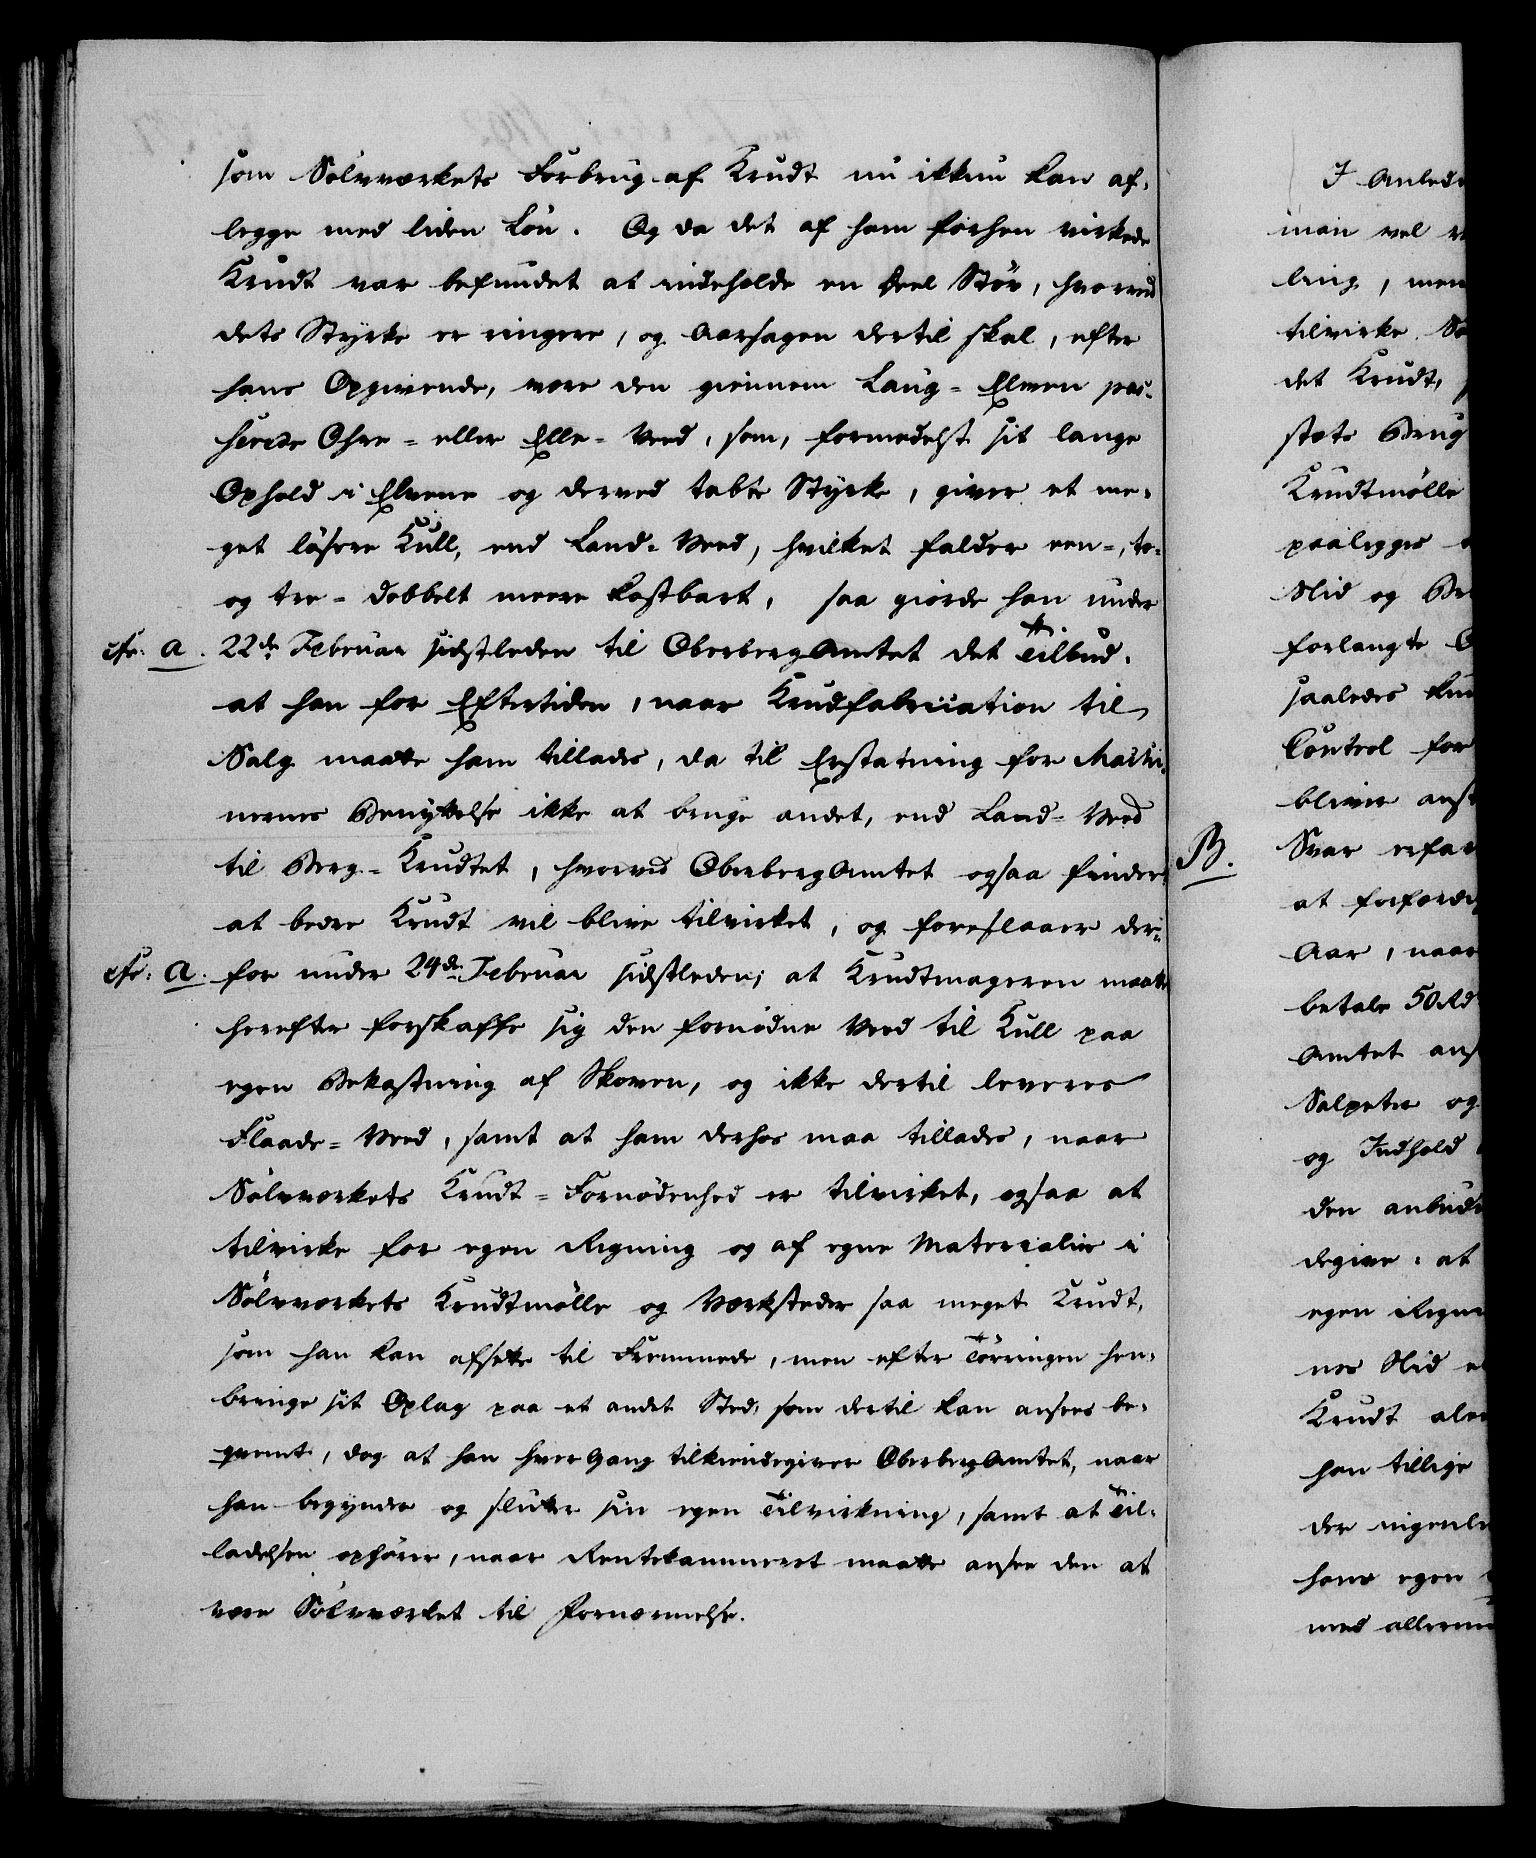 som Sølvværkets Forbrug af Krudt nu ikkun kan af-
legge med liden Løn. Og da det af ham forhen virkede
Krudt var befundet at indeholde en Deel Støv, hvorved
dets Styrke er ringere, og Aarsagen dertil skal, efter
hans Opgivende, være den giennem Laug-Elven pas-
serede Ohre- eller Elle-Veed, som, formedelst sit lange
Ophold i Elvene og derved tabte Styrke, giver et me-
get løsere Kull, end Land-Veed, hvilket falder een-, to-
og tre-dobbelt meere kostbart, saa giorde han under
cfr: a. 22de Februar sidstleden til OberbergAmtet det Tilbud,
at han for Eftertiden, naar Krudfabrication til
Salg maatte ham tillades, da til Erstatning for Maski-
nernes Benyttelse ikke at bruge andet, end Land-Veed
til Berg-Krudtet, hvorved OberbergAmtet ogsaa finder
at bedre Krudt vil blive tilvirket, og foreslaaer der-
cfr: a. for under 24de Februar sidstleden; at Krudtmageren maatte
herefter forskaffe sig den fornødne Veed til Kull paa
egen Bekostning af Skoven, og ikke dertil leveres
Flaade-Veed, samt at ham derhos maa tillades, naar
Sølvværkets Krudt-Fornødenhed er tilvirket, ogsaa at
tilvirke for egen Regning og af egne Materialier i
Sølvværkets Krudtmølle og Værksteder saa meget Krudt,
som han kan afsætte til Fremmede, men efter Tørringen hen-
bringe sit Oplag paa et andet Sted, som dertil kan ansees be-
qvemt, dog at han hver Gang tilkiendegiver OberbergAmtet, naar
han begynder og slutter sin egen Tilvirkning, samt at Til-
ladelsen ophører, naar Rentekammeret maatte ansee den at
være Sølvværket til Fornærmelse.
I Anled
man vel
ling, men
tilvirke
det Krudt,
stets Brug
Krudtmølle
paalegges
Slid og
forlangte
saaledes
Control for
bliver
B.
Svar
at
Aar, naar
betale 50 Rd
Amtet
Salpeter og
og Indhold
den
degive, at
egen
nes Slid
Krudt
han tillige
der
hans egen
med